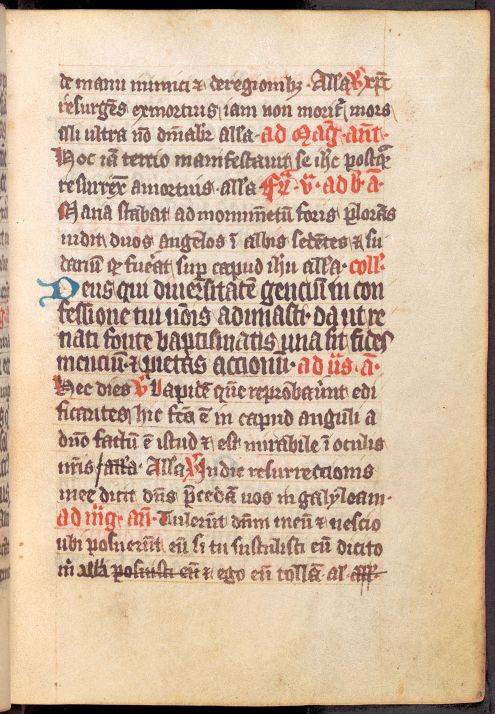 de manu inimici ⁊ deregionibꝫ · All'a ℣ xp̄c
resurgēs exmortuis iam non morit᷑ mors
illi ultra nō dn̄abit᷑ alla · ad Maḡ an̄t ·
Hoc iā tertio manifestauit se ih̄c postq̄
resurrex̄ amortuis · alla · fr̄ · v̄ · ad b̄ · a ·
Maria stabat ad monumētū foris plorās
uidit duos angelos ī albis sedētes ⁊ su
dariū qđ fuerat sup̄ capud ih̄u all'a · coll ·
Deus qui diuersitatē genciū in con
fessione tui nōis adunasti · da ut re
nati fonte baptismatis una sit fides
menciū ⁊ pietas accionū · ad us · a ·
Hec dies ℣ Lapidē quē reprobauer̄nt edi
ficantes hic fc̄s ē in capud anguli a
dn̄o factū ē istud ⁊ est mirabile ī oculis
nr̄is / alla · All'a ℣ In die resurrectionis
mee dicit dn̄s p̄cedā uos in galyleam ·
ad mḡ · an̄ · Tulerūt dn̄m meū ⁊ nescio
ubi posuerūt eū si tu sustulisti eū dicito
m̄ alla posuisti eū ⁊ ego eū tollā · al